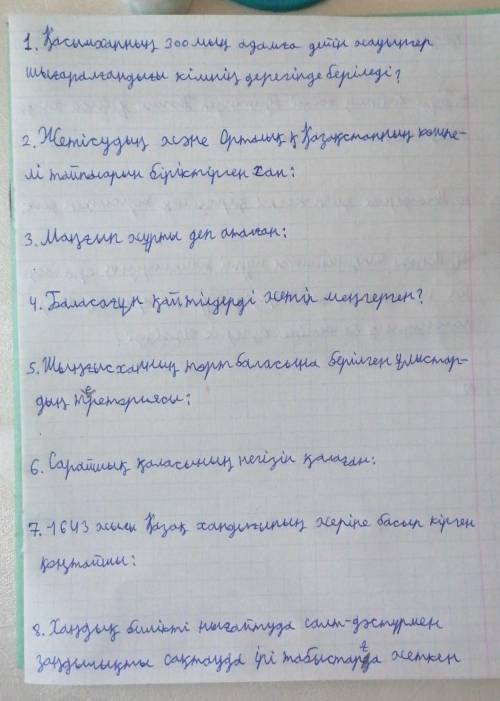 1. Қасымханның 300 мың адамға дейін жауынгер
шығаралғандығы кімнің дерегінде беріледі?
2. Жетісудың және Орталық Қазақстанның көшпе-
лі тайпыларын біріктірген хан:
3. Маңғып журты деп аталған:
4. Баласағұн қай тілдерді жетік меңгерген?
5. Шыңғысханның төрт баласына берілген ұлыстар-
дың территориясы:
6. Сарайшық қаласының негізін қалаған:
7. 1643 жылы Қазақ хандығының жеріне басып кірген
қоңтайшы:
8. Хандық билікті нығайтуда салт-дәстүрмен
заңдылықты сақтауда ірі табыстарға жеткен